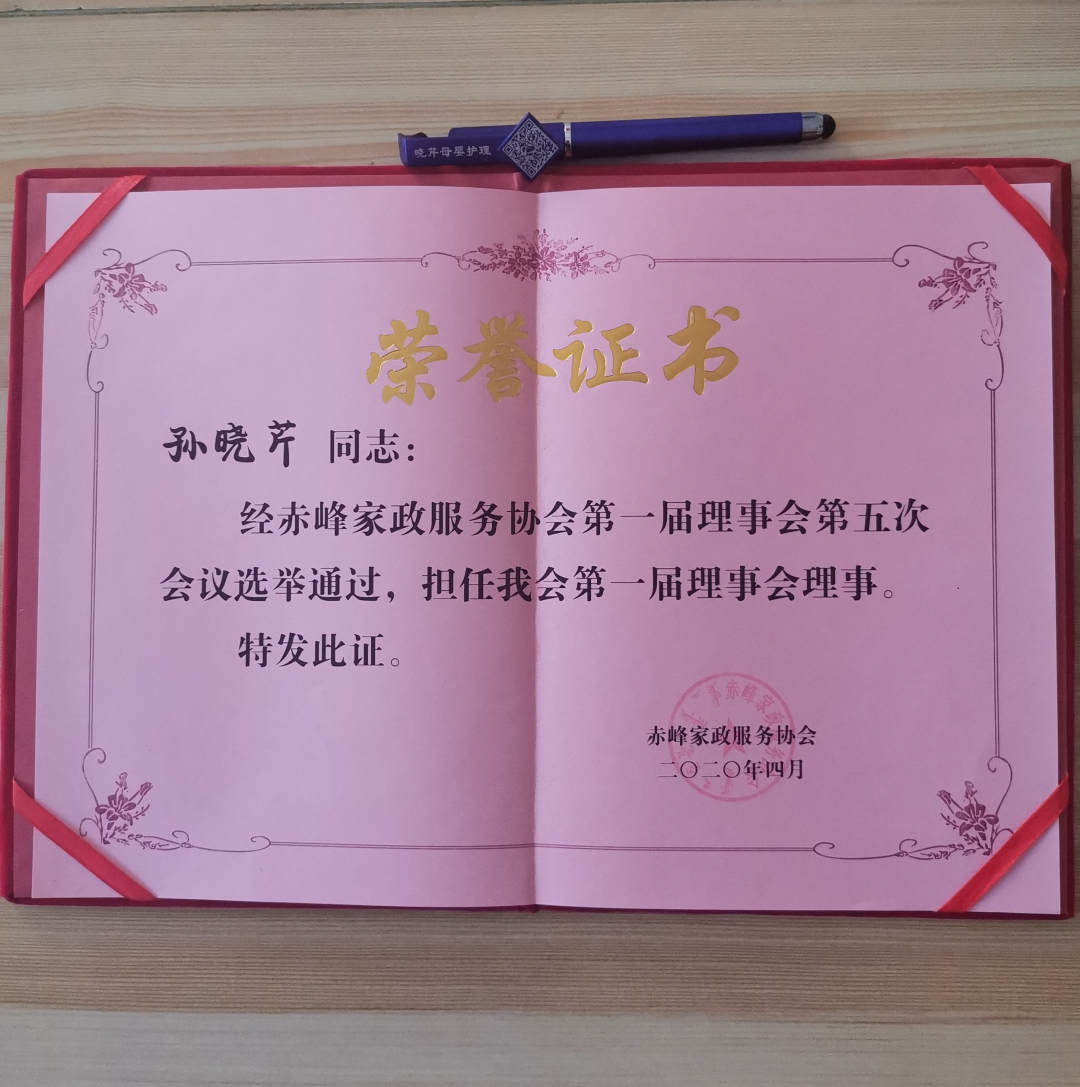 晓芹母婴护理
荣誉证书
孙晓芹 同志：
经赤峰家政服务协会第一届理事会第五次
会议选举通过，担任我会第一届理事会理事。
特发此证。
赤峰家政服务协会
二〇二〇年四月
赤峰家政服务协会